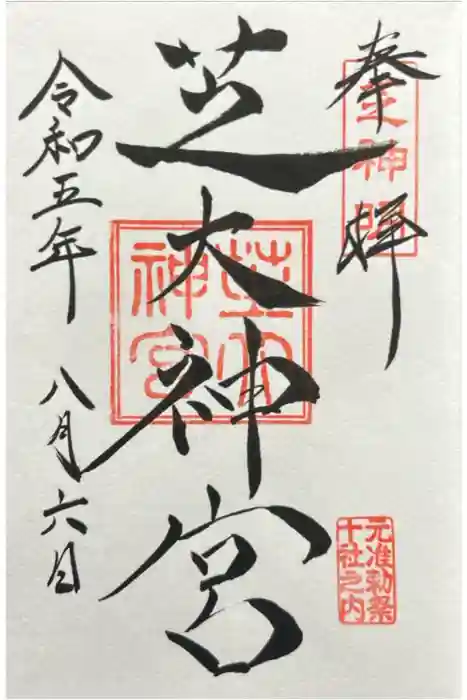 奉拝
芝神明
元准勅祭
十社之内
芝大神宮
芝大
神宮
令和五年 八月六日